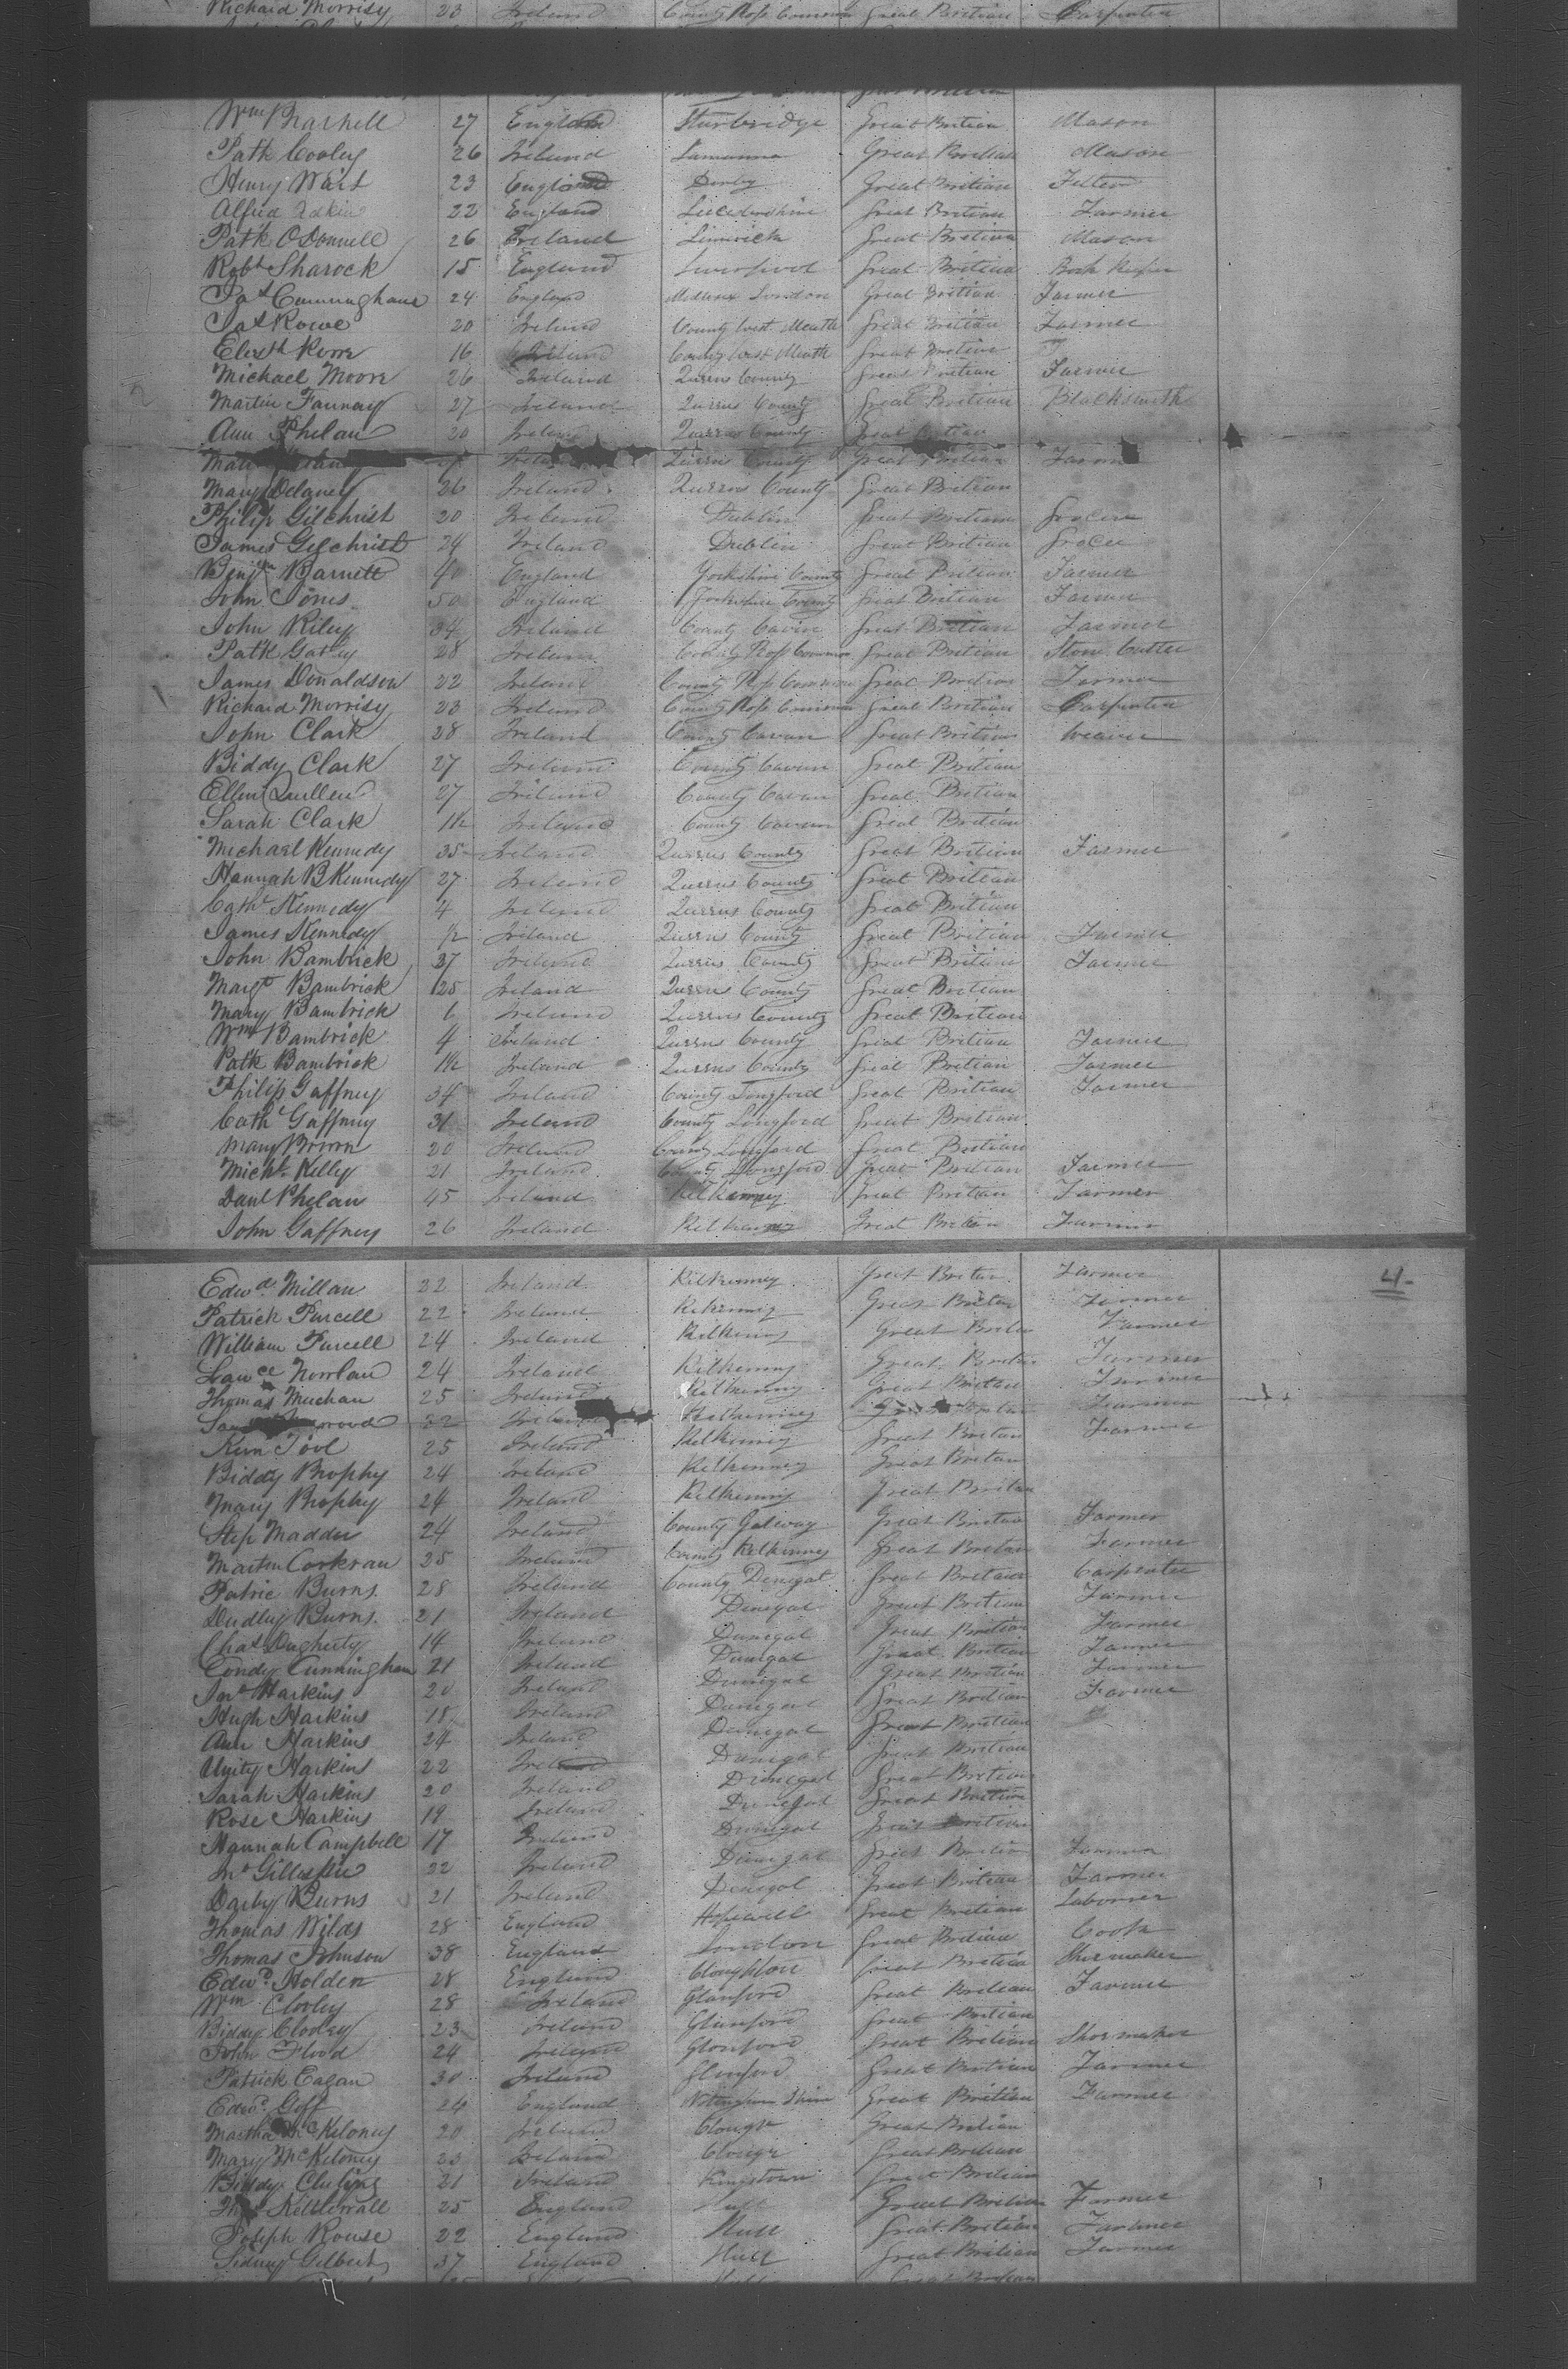 Richard Morrisy 23 Ireland County Ross Common Great Britian Carpenter
Wm 27 England Sturbridge Great Britian Mason
Patk Cooley 26 Ireland Great Britian Mason
Henry Wait 23 England Derby Great Britian
Alfred Adkin 22 England Great Britian Farmer
Patk O'Donnell 26 Ireland Limerick Great Britian Mason
Robt Sharock 15 England Liverpool Great Britian Book Keeper
Jas Cunningham 24 England London Great Britian Farmer
Jas Rowe 20 Ireland County West Meath Great Britian Farmer
16 Ireland County West Meath Great Britian
Michael Moore 26 Ireland Queens County Great Britian Farmer
Martin 27 Ireland Queens County Great Britian Blacksmith
Ann Phelan 20 Ireland Queens County Great Britian
Ireland Queens County Great Britian
Mary Delaney 26 Ireland Queens County Great Britian
Philip Gilchrist 20 Ireland Dublin Great Britian Grocer
James Gilchrist 24 Ireland Dublin Great Britian Grocer
Benjn Barnett 40 England Yorkshire County Great Britian Farmer
John Jones 50 England Yorkshire County Great Britian Farmer
John Riley 34 Ireland County Cavin Great Britian Farmer
Patk 28 Ireland County Ross Common Great Britian Stone Cutter
James Donaldson 22 Ireland County Ross Common Great Britian Farmer
Richard Morrisy 23 Ireland County Ross Common Great Britian Carpenter
John Clark 28 Ireland County Cavan Great Britian Weaver
Biddy Clark 27 Ireland County Cavan Great Britian
Ellen Quillen 27 Ireland County Cavan Great Britian
Sarah Clark 1½ Ireland County Cavan Great Britian
Michael Kennedy 35 Ireland Queens County Great Britian Farmer
Hannah B Kennedy 27 Ireland Queens County Great Britian
Cath Kennedy 4 Ireland Queens County Great Britian
James Kennedy ½ Ireland Queens County Great Britian Farmer
John Bambrick 37 Ireland Queens County Great Britian Farmer
Margt Bambrick 25 Ireland Queens County Great Britian
Mary Bambrick 6 Ireland Queens County Great Britian
Wm Bambrick 4 Ireland Queens County Great Britian Farmer
Patk Bambrick 1½ Ireland Queens County Great Britian Farmer
Philip Gaffney 34 Ireland County Longford Great Britian Farmer
Cath Gaffney 31 Ireland County Longford Great Britian
Mary Brown 20 Ireland County Longford Great Britian
Michl Kelly 21 Ireland County Longford Great Britian Farmer
Danl Phelan 45 Ireland Kilkenney Great Britian Farmer
John Gaffney 26 Ireland Great Britian Farmer
Edwd Millan 22 Ireland Kilkenney Great Britan Farmer 4
Patrick Purcell 22 Ireland Kilkenny Great Britan Farmer
William Purcell 24 Ireland Kilkenny Great Britan Farmer
Lawce Nowlan 24 Ireland Kilkenny Great Britan Farmer
Thomas Meechan 25 Ireland Kilkenny Great Britan Farmer
22 Ireland Kilkenney Great Britan Farmer
Tool 25 Ireland Kilkenney Great Britan Farmer
Biddy Brophy 24 Ireland Kilkenney Great Britan
Mary Brophy 24 Ireland Kilkenny Great Britan
Step Madden 24 Ireland County Galway Great Britan Farmer
Marten Corkran 25 Ireland County Kilkenney Great Britan Farmer
Patric Burns 28 Ireland County Denegal Great Britain Carpenter
Dudley Burns 21 Ireland Denegal Great Britian Farmer
Chas Dogherty 14 Ireland Denegal Great Britian Farmer
Condy Cunningham 21 Ireland Denegal Great Britian Farmer
Jno Harkins 20 Ireland Denegal Great Britian Farmer
Hugh Harkins 18 Ireland Denegal Great Britian Farmer
Ann Harkins 24 Ireland Denegal Great Britian
Unity Harkins 22 Ireland Denegal Great Britian
Sarah Harkins 20 Ireland Denegal Great Britian
Rose Harkins 19 Ireland Denegal Great Britian
Hannah Campbell 17 Ireland Denegal Great Britian
Jno Gillespie 22 Ireland Denegal Great Britian Farmer
Darby Burns 21 Ireland Denegal Great Britian Farmer
Thomas Wilds 28 England Hopewell Great Britian Laborer
Thomas Johnson 38 England London Great Britian Cook
Edwd Holden 28 England Cloughton Great Britian Shoemaker
Wm Clooley 28 Ireland Glanford Great Britian Farmer
Biddy Clooley 23 Ireland Glanford Great Britian
John Flood 24 Ireland Glanford Great Britian Shoemaker
Patrick Eagan 30 Ireland Great Britian Farmer
Edwd Goff 26 England Great Britian Farmer
Martha McKeloney 20 Ireland Clough Great Britian
Mary McKeloney 23 Ireland Clough Great Britian
Biddy 21 Ireland Kingstown Great Britian
25 England Hull Great Britian Farmer
Joseph Rouse 22 England Hull Great Britian Farmer
Sidney Gilbert 37 England Hull Great Britian Farmer